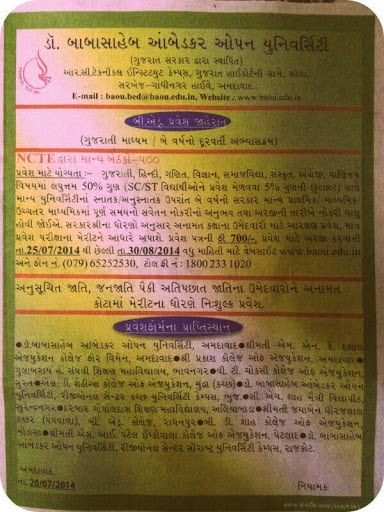 ડૉ. બાબાસાહેબ આંબેડકર ઓપન યુનિવર્સિટી
(ગુજરાત સરકાર દ્વારા સ્થાપિત)
આર.સી.ટેકનીકલ ઈન્સ્ટિટ્યૂટ કેમ્પસ, ગુજરાત હાઈકોર્ટની સામે, સોલા,
સરખેજ-ગાંધીનગર હાઈવે, અમદાવાદ.
E-mail : baou.bed@baou.edu.in, Website : www.baou.edu.in
બી.એડ્. પ્રવેશ જાહેરાત
(ગુજરાતી માધ્યમ / બે વર્ષનો દૂરવર્તી અભ્યાસક્રમ)
NCTE દ્વારા માન્ય બેઠકો-૫૦૦
પ્રવેશ માટે યોગ્યતા :- ગુજરાતી, હિન્દી, ગણિત, વિજ્ઞાન, સમાજવિદ્યા, સંસ્કૃત, અંગ્રેજી, વાણિજ્ય
વિષયમાં લઘુત્તમ 50% ગુણ (SC/ST વિદ્યાર્થીઓને પ્રવેશ મેળવવા 5% ગુણની છૂટછાટ) સાથે
માન્ય યુનિવર્સિટીના સ્નાતક/અનુસ્નાતક ઉપરાંત બે વર્ષનો સરકાર માન્ય પ્રાથમિક/માધ્યમિક/
ઉચ્ચતર માધ્યમિકમાં પૂર્ણ સમયનો સવેતન નોકરીનો અનુભવ તથા અરજીની તારીખે નોકરી ચાલુ
હોવી જોઈએ. સરકારશ્રીના ધોરણો અનુસાર અનામત કક્ષાના ઉમેદવારો માટે આરક્ષણ પ્રવેશ, માત્ર
પ્રવેશ પરીક્ષાના મેરીટને આધારે અપાશે. પ્રવેશ પત્રની ફી 700/-, પ્રવેશ માટે અરજી કરવાની
તા.25/07/2014 થી છેલ્લી તા.30/08/2014 વધુ માહિતી માટે વેબસાઈટ www.baou.edu.in
અને ફોન નં. (079) 65252530, ટોલ ફ્રી નં : 1800 233 1020
અનુસૂચિત જાતિ, જનજાતિ પૈકી અતિપછાત જાતિના ઉમેદવારોને અનામત
કોટામાં મેરીટના ધોરણે નિઃશુલ્ક પ્રવેશ.
પ્રવેશફોર્મના પ્રાપ્તિસ્થાન
●ડૉ.બાબાસાહેબ આંબેડકર ઓપન યુનિવર્સિટી, અમદાવાદ●શ્રીમતી એમ. એન. કે. દલાલ
એજ્યુકેશન કોલેજ ફોર વિમેન, અમદાવાદ● શ્રી પ્રકાશ કોલેજ ઓફ એજ્યુકેશન, અમદાવાદ●
ગુલાબરાય હ. સંઘવી શિક્ષણ મહાવિદ્યાલય, ભાવનગર● વી. ટી. ચોકસી કોલેજ ઓફ એજ્યુકેશન,
સુરત●એસ. ડી. શેઠીઆ કોલેજ ઓફ એજ્યુકેશન, મુંદ્રા (કચ્છ)● ડૉ. બાબાસાહેબ આંબેડકર ઓપન
યુનિવર્સિટી, રીજીયોનલ સેન્ટર કચ્છ યુનિવર્સિટી કેમ્પસ, ભુજ.● સી. એચ. શાહ મૈત્રી વિદ્યાપીઠ,
સુરેન્દ્રનગર●દરબાર ગોપાળદાસ શિક્ષણ મહાવિદ્યાલય, અલિયાબાડા●શ્રીમતી જયાબેન ધીરજલાલ
ઠક્કર (પંપવાળા), બી. એડ્. કોલેજ, રાધનપુર● બી. ડી. શાહ કોલેજ ઓફ એજ્યુકેશન,
મોડાસા● શ્રીમતી એસ. આઈ. પટેલ ઈપ્કોવાલા કોલેજ ઓફ એજ્યુકેશન, પેટલાદ● ડૉ. બાબાસાહેબ
આંબેડકર ઓપન યુનિવર્સિટી, રીજીયોનલ સેન્ટર સૌરાષ્ટ્ર યુનિવર્સિટી કેમ્પસ, રાજકોટ.
અમદાવાદ.
તા. 20/07/2014
નિયામક